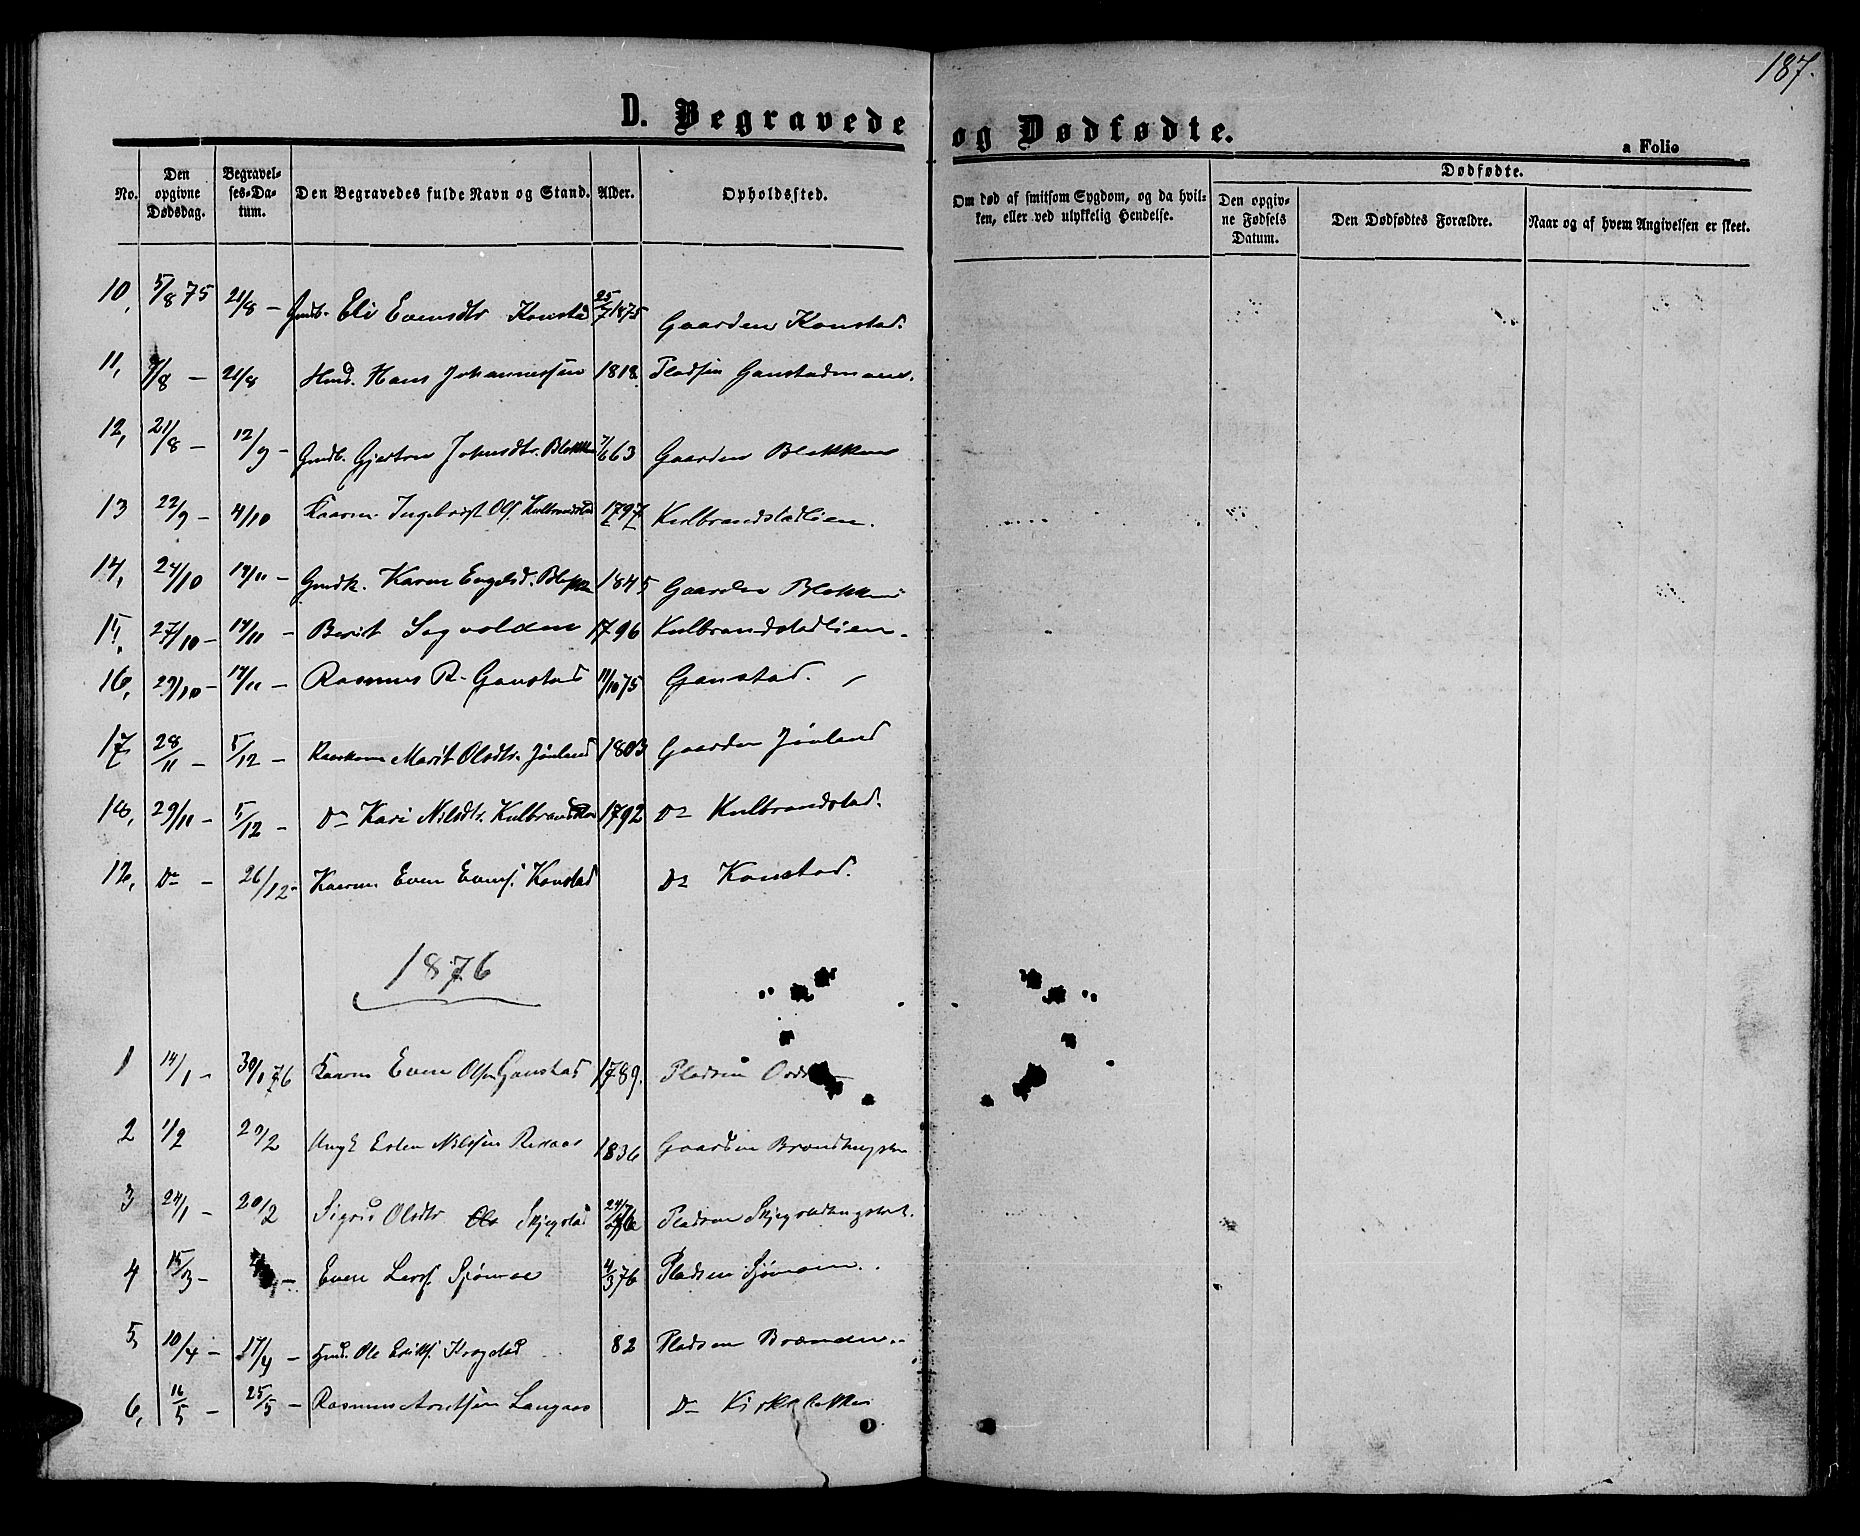 187.
D. Begravede og Dødfødte.
a Folio
No. Den opgivne Dødsdag. Begravelses-Datum. Den Begravedes fulde Navn og Stand. Alder. Opholdssted. Om død af smitsom Sygdom, og da hvilken, eller ved ulykkelig Hendelse. Dødfødte. Den opgivne Fødsels Datum. Den Dødfødtes Forældre. Naar og af hvem Angivelsen er skeet.
10, 5/8 75 21/8 – Gmdb. Eli Evensdtr Konstad 25/7 1875 Gaarden Konstad.
11, 9/8 – 21/8 Hmd. Hans Johannessen 1818 Pladsen
12, 21/8 – 12/9 – Gmdb. Gjertru Johnsdtr. Blekken 7/6 63 Gaarden Blekken
13 22/9 – 4/10 Kaarm Ingebrigt Ols. Kulbrandstad 1797 Kulbrandstadlien.
14, 24/10 14/11 – Gmdk. Karen Engelsd. Blekken 1845 Gaarden Blekken
15, 27/10 – 14/11 – Berit Segvolden 1796 Kulbrandstadlien.
16, 29/10 – 14/11 – Rasmus R. Ganstad 11/10 75 Ganstad.
17 28/11 – 5/12 – Kaarkone Marit Olsdtr. 1803 Gaarden
18, 29/11 – 5/12 – Do Kari Nilsdtr. 1792 Do Kulbrandstad.
12, Do – 26/12 – Kaarm Even Evens. Konstad Do Konstad.
1876
1 14/1 – 30/1 76 Kaarm Even Olsen Ganstad 1789. Pladsen
2 1/2 20/2 Ungk Esten Nilssen 1836 Gaarden
3 24/1 – 20/2 Sigrid Olsdtr Skjegstad Pladsen
4 15/3 – Even Lars. Sjømoe 4/3 76 Pladsen Sjømoen.
5, 10/4 – 17/4 – Hmd. Ole Eriks. Krogstad 82 Pladsen Brænden.
6, 16/5 – 25/5 – Rasmus Arntsen Langaas Do Kirkebakken